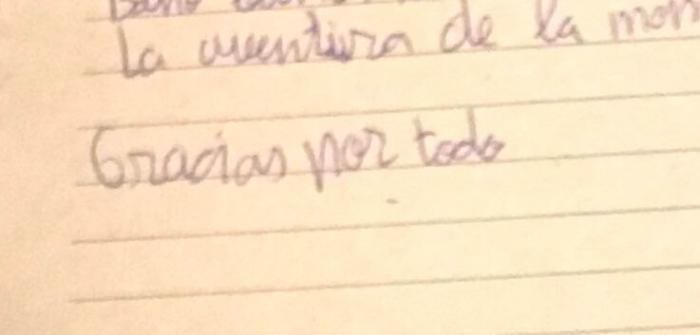 la aventura de la mon
Gracias por todo